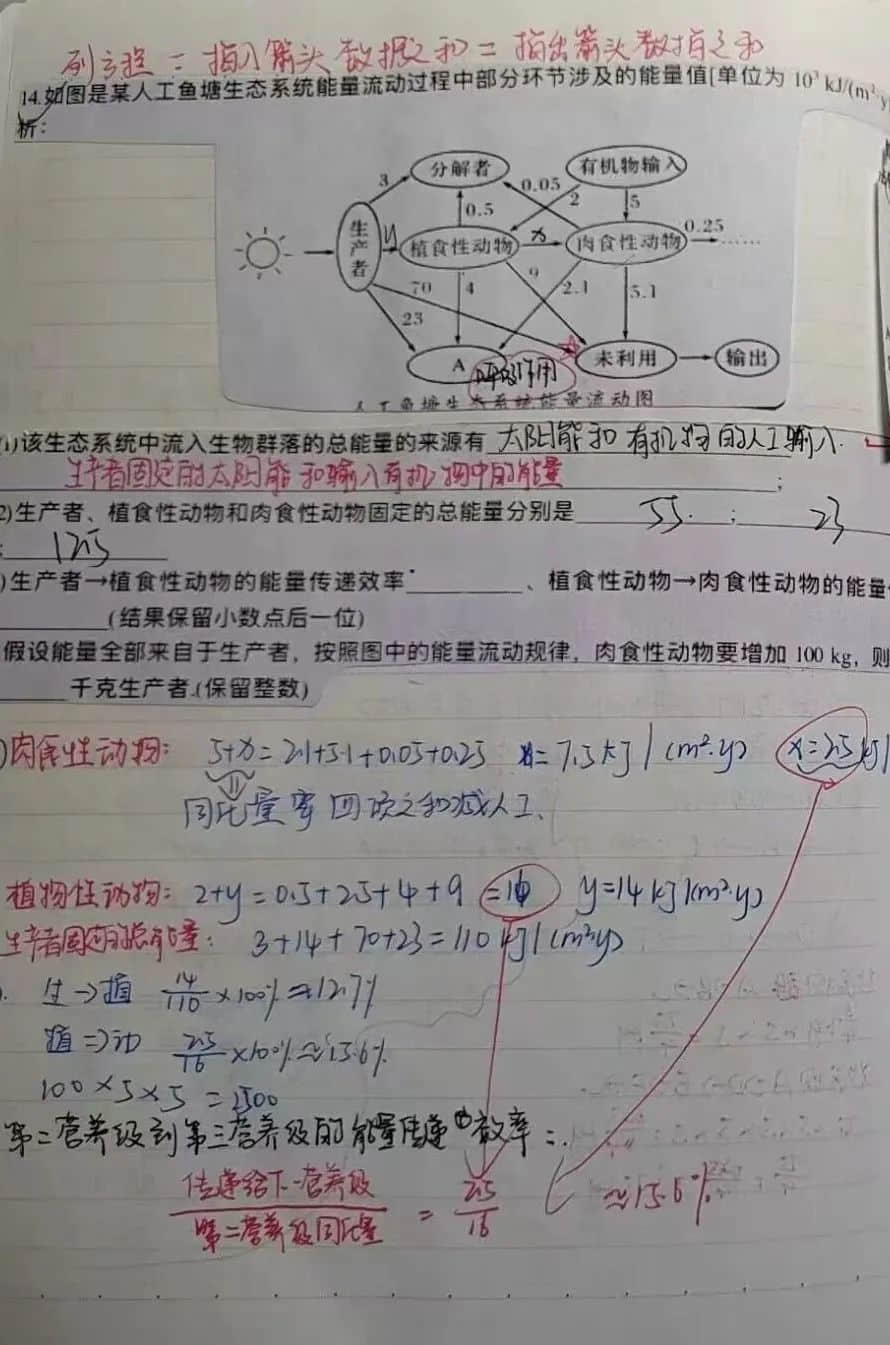 列方程 = 指入箭头数据之和 = 指出箭头数据之和
14.如图是某人工鱼塘生态系统能量流动过程中部分环节涉及的能量值[单位为 10³ kJ/(m²·y
析:
分解者 有机物输入
3 0.05 2 5
0.5
生产者 y 植食性动物 x 肉食性动物 0.25 ……
70 4 9 2.1 5.1
23
A 呼吸作用 未利用 输出
人工鱼塘生态系统能量流动图
1)该生态系统中流入生物群落的总能量的来源有 太阳能和有机物的人工输入.
生产者固定的太阳能和输入有机物中的能量 ;
2)生产者、植食性动物和肉食性动物固定的总能量分别是 55. ; 23
; 125
)生产者→植食性动物的能量传递效率 、植食性动物→肉食性动物的能量
(结果保留小数点后一位)
假设能量全部来自于生产者，按照图中的能量流动规律，肉食性动物要增加 100 kg，则
千克生产者.(保留整数)
)肉食性动物: 5+x=2.1+5.1+0.05+0.25 x=7.5 kJ/(m²·y) x=2.5 kJ/
同化量寄四项之和减人工、
植物性动物: 2+y=0.5+2.5+4+9 =16 y=14 kJ/(m²·y)
生产者固定的总能量: 3+14+70+23=110 kJ/(m²y)
生→植 14/110 ×100%≈12.7%
植→动 2.5/16 ×100%≈15.6%
100×5×5=2500
第二营养级到第三营养级的能量传递效率=.
传递给下一营养级 / 第二营养级同化量 = 2.5/16 ≈15.6%